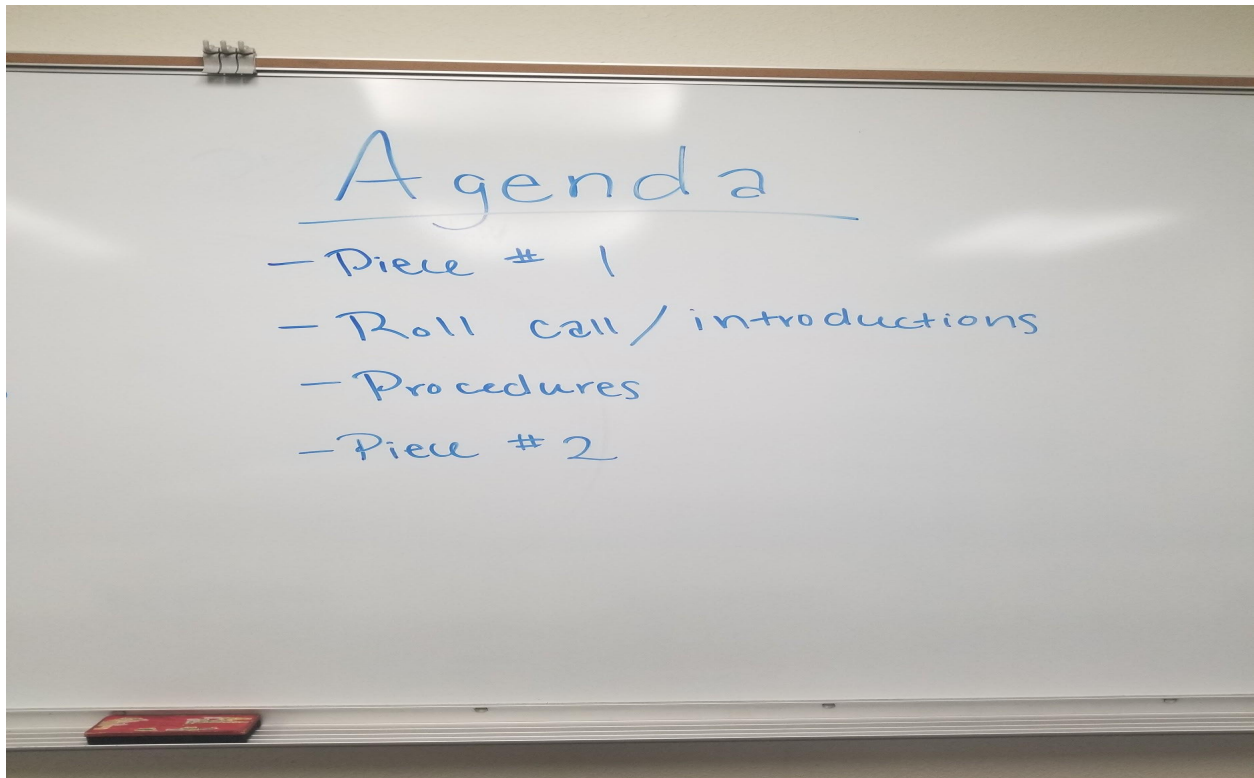 Agenda
- Piece # 1
- Roll call / introductions
- Procedures
- Piece # 2